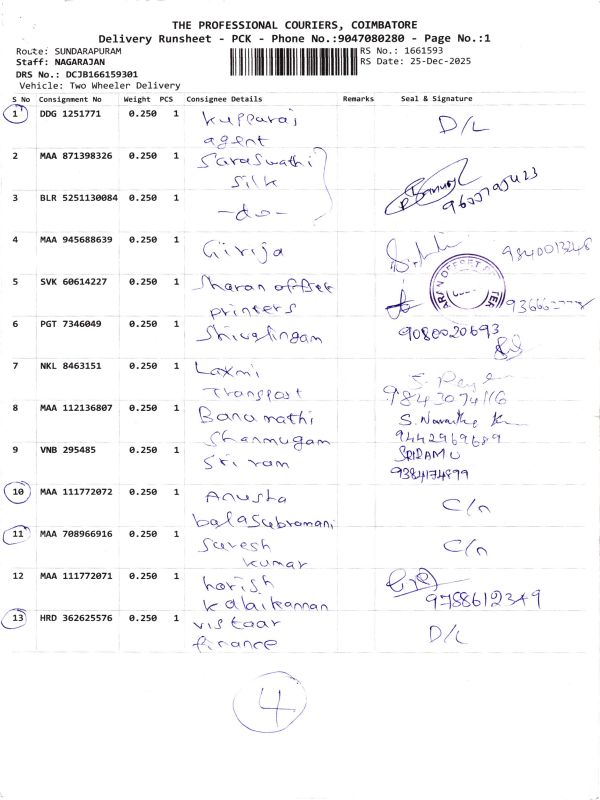 THE PROFESSIONAL COURIERS, COIMBATORE
Delivery Runsheet - PCK - Phone No.:9047080280 - Page No.:1
Route: SUNDARAPURAM
Staff: NAGARAJAN
DRS No.: DCJB166159301
Vehicle: Two Wheeler Delivery
RS No.: 1661593
RS Date: 25-Dec-2025
S No Consignment No Weight PCS Consignee Details Remarks Seal & Signature
1 DDG 1251771 0.250 1 Kupparaj D/L
agent
2 MAA 871398326 0.250 1 Saraswathi
Silk
3 BLR 5251130084 0.250 1 -do-
4 MAA 945688639 0.250 1 Girija 9840013248
5 SVK 60614227 0.250 1 Sharan offset
printers
6 PGT 7346049 0.250 1 Shivalingam 9080020693
7 NKL 8463151 0.250 1 Laxmi
Transport 9843074116
8 MAA 112136807 0.250 1 Banumathi
Shanmugam 9442969689
9 VNB 295485 0.250 1 Sri ram SRIRAMU
9384174899
10 MAA 111772072 0.250 1 Anusha C/n
balasubramani
11 MAA 708966916 0.250 1 Suresh C/n
kumar
12 MAA 111772071 0.250 1 harish
kalaikannan 9788612349
13 HRD 362625576 0.250 1 vistaar D/L
finance
4